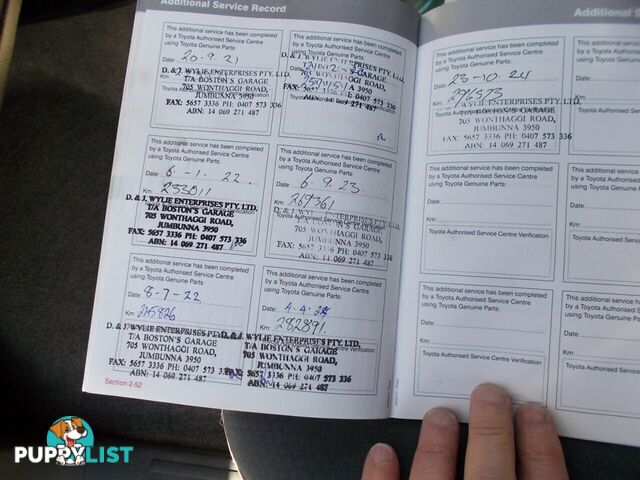 Additional Service Record
This additional service has been completed
by a Toyota Authorised Service Centre
using Toyota Genuine Parts:
Date 20.9.21
Km
D. & J. WYLIE ENTERPRISES PTY. LTD.
T/A BOSTON'S GARAGE
705 WONTHAGGI ROAD,
JUMBUNNA 3950
FAX: 5657 3336 PH: 0407 573 336
ABN: 14 069 271 487
This additional service has been completed
by a Toyota Authorised Service Centre
using Toyota Genuine Parts:
D. & J. WYLIE ENTERPRISES PTY. LTD.
GARAGE
FAX: 5657 3336 PH: 0407 573 336
ABN: 14 069 271 487
This additional service has been completed
by a Toyota Authorised Service Centre
using Toyota Genuine Parts:
Date 6.-1.-22.
Km 233011
D. & J. WYLIE ENTERPRISES PTY. LTD.
T/A BOSTON'S GARAGE
705 WONTHAGGI ROAD,
JUMBUNNA 3950
FAX: 5657 3336 PH: 0407 573 336
ABN: 14 069 271 487
This additional service has been completed
by a Toyota Authorised Service Centre
using Toyota Genuine Parts:
Date 6.9.23
Km 269361
Toyota Authorised Service Centre Verification
D. & J. WYLIE ENTERPRISES PTY. LTD.
T/A BOSTON'S GARAGE
705 WONTHAGGI ROAD,
JUMBUNNA 3950
FAX: 5657 3336 PH: 0407 573 336
ABN: 14 069 271 487
This additional service has been completed
by a Toyota Authorised Service Centre
using Toyota Genuine Parts:
Date 8-7-22
Km 245826
D. & J. WYLIE ENTERPRISES PTY. LTD.
T/A BOSTON'S GARAGE
705 WONTHAGGI ROAD,
JUMBUNNA 3950
FAX: 5657 3336 PH: 0407 573 336
ABN: 14 069 271 487
This additional service has been completed
by a Toyota Authorised Service Centre
using Toyota Genuine Parts:
Date 4.4.24
Km 282891.
D. & J. WYLIE ENTERPRISES PTY. LTD.
T/A BOSTON'S GARAGE
705 WONTHAGGI ROAD,
JUMBUNNA 3950
FAX: 5657 3336 PH: 0407 573 336
ABN: 14 069 271 487
Section 2-52
Additional S
This additional service has been completed
by a Toyota Authorised Service Centre
using Toyota Genuine Parts:
Date 23-10-24
Km
D. & J. WYLIE ENTERPRISES PTY. LTD.
T/A BOSTON'S GARAGE
705 WONTHAGGI ROAD,
JUMBUNNA 3950
FAX: 5657 3336 PH: 0407 573 336
ABN: 14 069 271 487
This additional service
by a Toyota Authorised
using Toyota Genuine
Date
This additional service has been completed
by a Toyota Authorised Service Centre
using Toyota Genuine Parts:
Date
Km
Toyota Authorised Service Centre Verification
This additional service
by a Toyota Authorised
using Toyota Genuine
Date
Km
Toyota Authorised Service
This additional service has been completed
by a Toyota Authorised Service Centre
using Toyota Genuine Parts:
Date
Km
Toyota Authorised Service Centre Verification
This additional service
by a Toyota Authorised
using Toyota Genuine
Date
Km
Toyota Authorised Service
PUPPYLIST